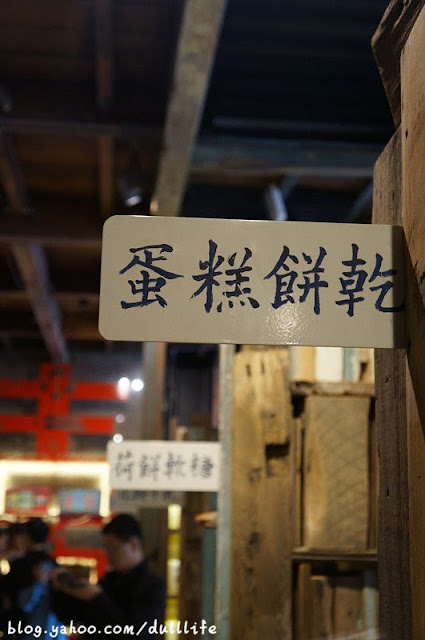 蛋糕餅乾
荷餅軟糖
blog.yahoo.com/dulllife